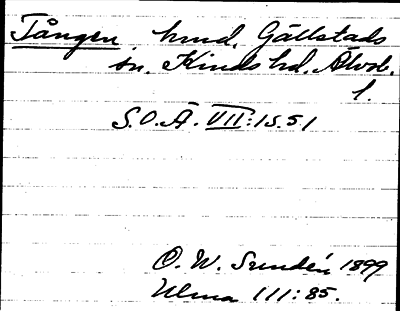 Tången, hmd, Gällstads
sn. Kinds hd. Älvd.
l.
S.O.Ä. VII:1 s. 51
O. W. Sundén 1899
Ulma 111:85.